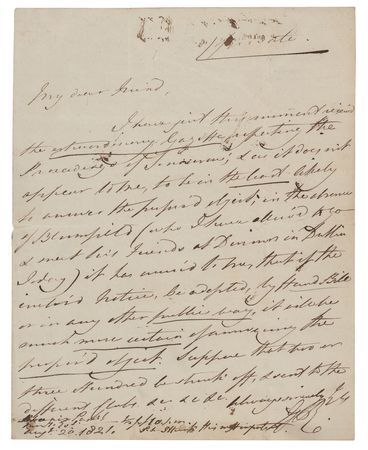 My dear Friend,
I have just this moment received
the extraordinary Gazette respecting the
Proceedings of Tomorrow, & as it does not
appear to me, to be in the least likely
to answer the proposed object, in the absence
of Bloomfield (who I have allowed to go
& meet his Friends at Dinner in Dublin
Today) it has occurred to me, that if the
enclosed Notice, be adopted, by Hand Bills
or in any other public way, it will be
much more certain of announcing the
proposed object. Suppose that two or
three Hundred be struck off, & sent to the
different Clubs &c &c &c. Always sincerely Yrs
1821.